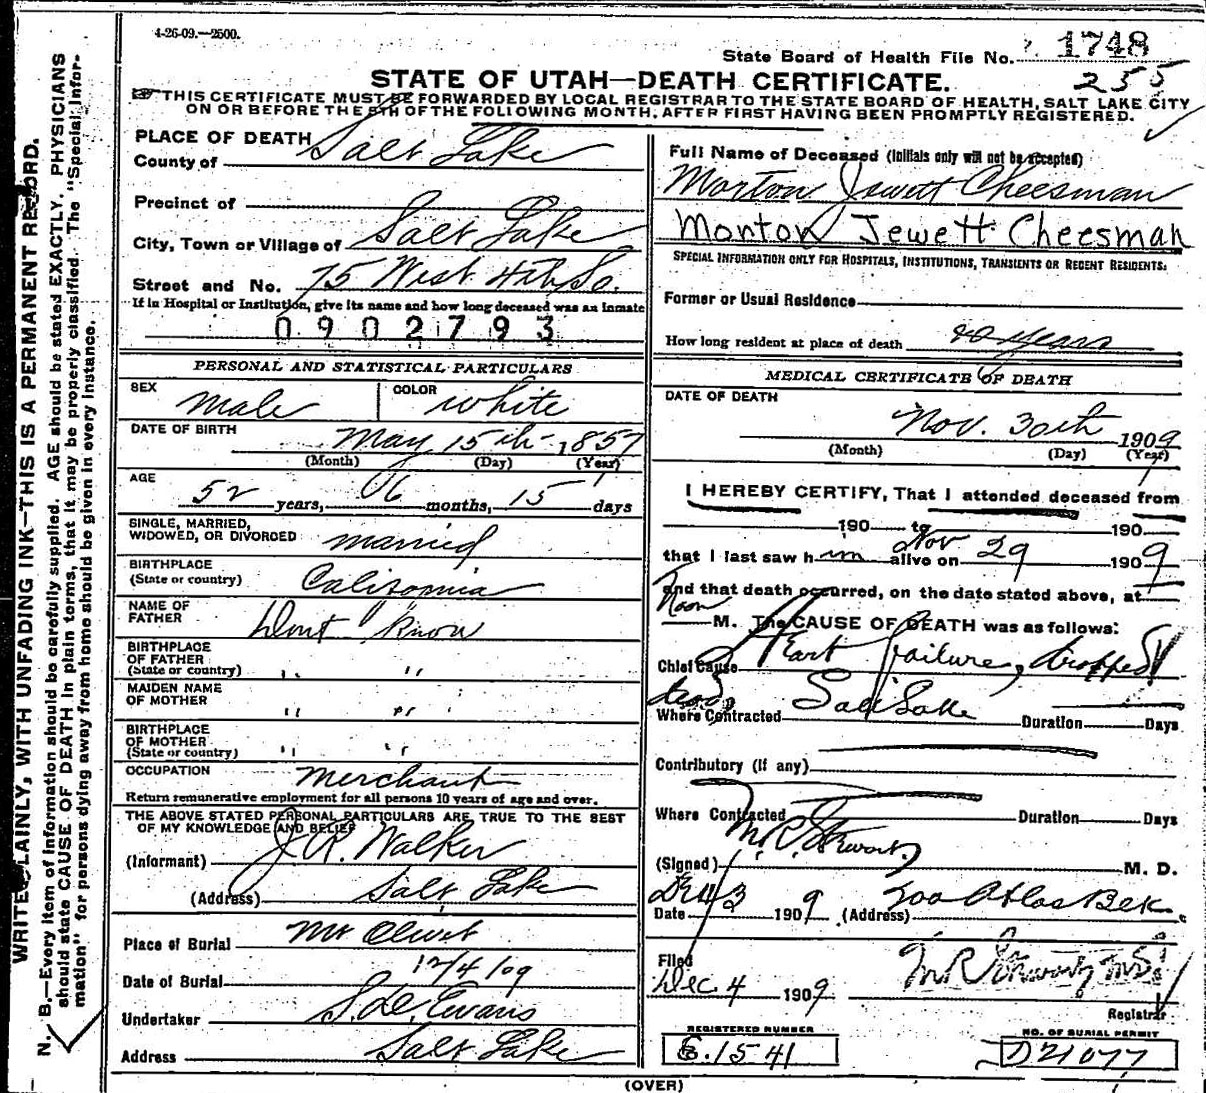 4-26-09.—2500.
State Board of Health File No. 1748
255
STATE OF UTAH—DEATH CERTIFICATE.
THIS CERTIFICATE MUST BE FORWARDED BY LOCAL REGISTRAR TO THE STATE BOARD OF HEALTH, SALT LAKE CITY
ON OR BEFORE THE 5TH OF THE FOLLOWING MONTH, AFTER FIRST HAVING BEEN PROMPTLY REGISTERED.
WRITE PLAINLY, WITH UNFADING INK—THIS IS A PERMANENT RECORD.
N. B.—Every item of information should be carefully supplied. AGE should be stated EXACTLY. PHYSICIANS
should state CAUSE OF DEATH in plain terms, that it may be properly classified. The "Special Infor-
mation" for persons dying away from home should be given in every instance.
PLACE OF DEATH
County of Salt Lake
Precinct of
City, Town or Village of Salt Lake
Street and No. 75 West 4th So.
If in Hospital or Institution, give its name and how long deceased was an inmate
0902793
PERSONAL AND STATISTICAL PARTICULARS
SEX Male COLOR White
DATE OF BIRTH May 15th 1857
(Month) (Day) (Year)
AGE 52 years, 06 months, 15 days
SINGLE, MARRIED,
WIDOWED, OR DIVORCED married
BIRTHPLACE
(State or country) California
NAME OF
FATHER Dont Know
BIRTHPLACE
OF FATHER
(State or country) " "
MAIDEN NAME
OF MOTHER " "
BIRTHPLACE
OF MOTHER
(State or country) " "
OCCUPATION Merchant
Return remunerative employment for all persons 10 years of age and over.
THE ABOVE STATED PERSONAL PARTICULARS ARE TRUE TO THE BEST
OF MY KNOWLEDGE AND BELIEF
(Informant) J. R. Walker
(Address) Salt Lake
Place of Burial Mt Olivet
Date of Burial 12/4/09
Undertaker S. D. Evans
Address Salt Lake
Full Name of Deceased (Initials only will not be accepted)
Morton Jewett Cheesman
Morton Jewett Cheesman
SPECIAL INFORMATION ONLY FOR HOSPITALS, INSTITUTIONS, TRANSIENTS OR RECENT RESIDENTS:
Former or Usual Residence
How long resident at place of death 40 years
MEDICAL CERTIFICATE OF DEATH
DATE OF DEATH
Nov. 30th 1909
(Month) (Day) (Year)
I HEREBY CERTIFY, That I attended deceased from
190 to 190
that I last saw him alive on Nov 29 1909
and that death occurred, on the date stated above, at
Noon M. The CAUSE OF DEATH was as follows:
Chief Cause Heart failure, dropped
dead
Where Contracted Salt Lake Duration Days
Contributory (if any)
Where Contracted Duration Days
(Signed) M. R. Stewart M. D.
Date Dec 3 1909 (Address) 200 Atlas Bek.
Filed
Dec. 4 1909 M R Stewart M.D.
Registrar
REGISTERED NUMBER
E.1541
NO. OF BURIAL PERMIT
D21077
(OVER)